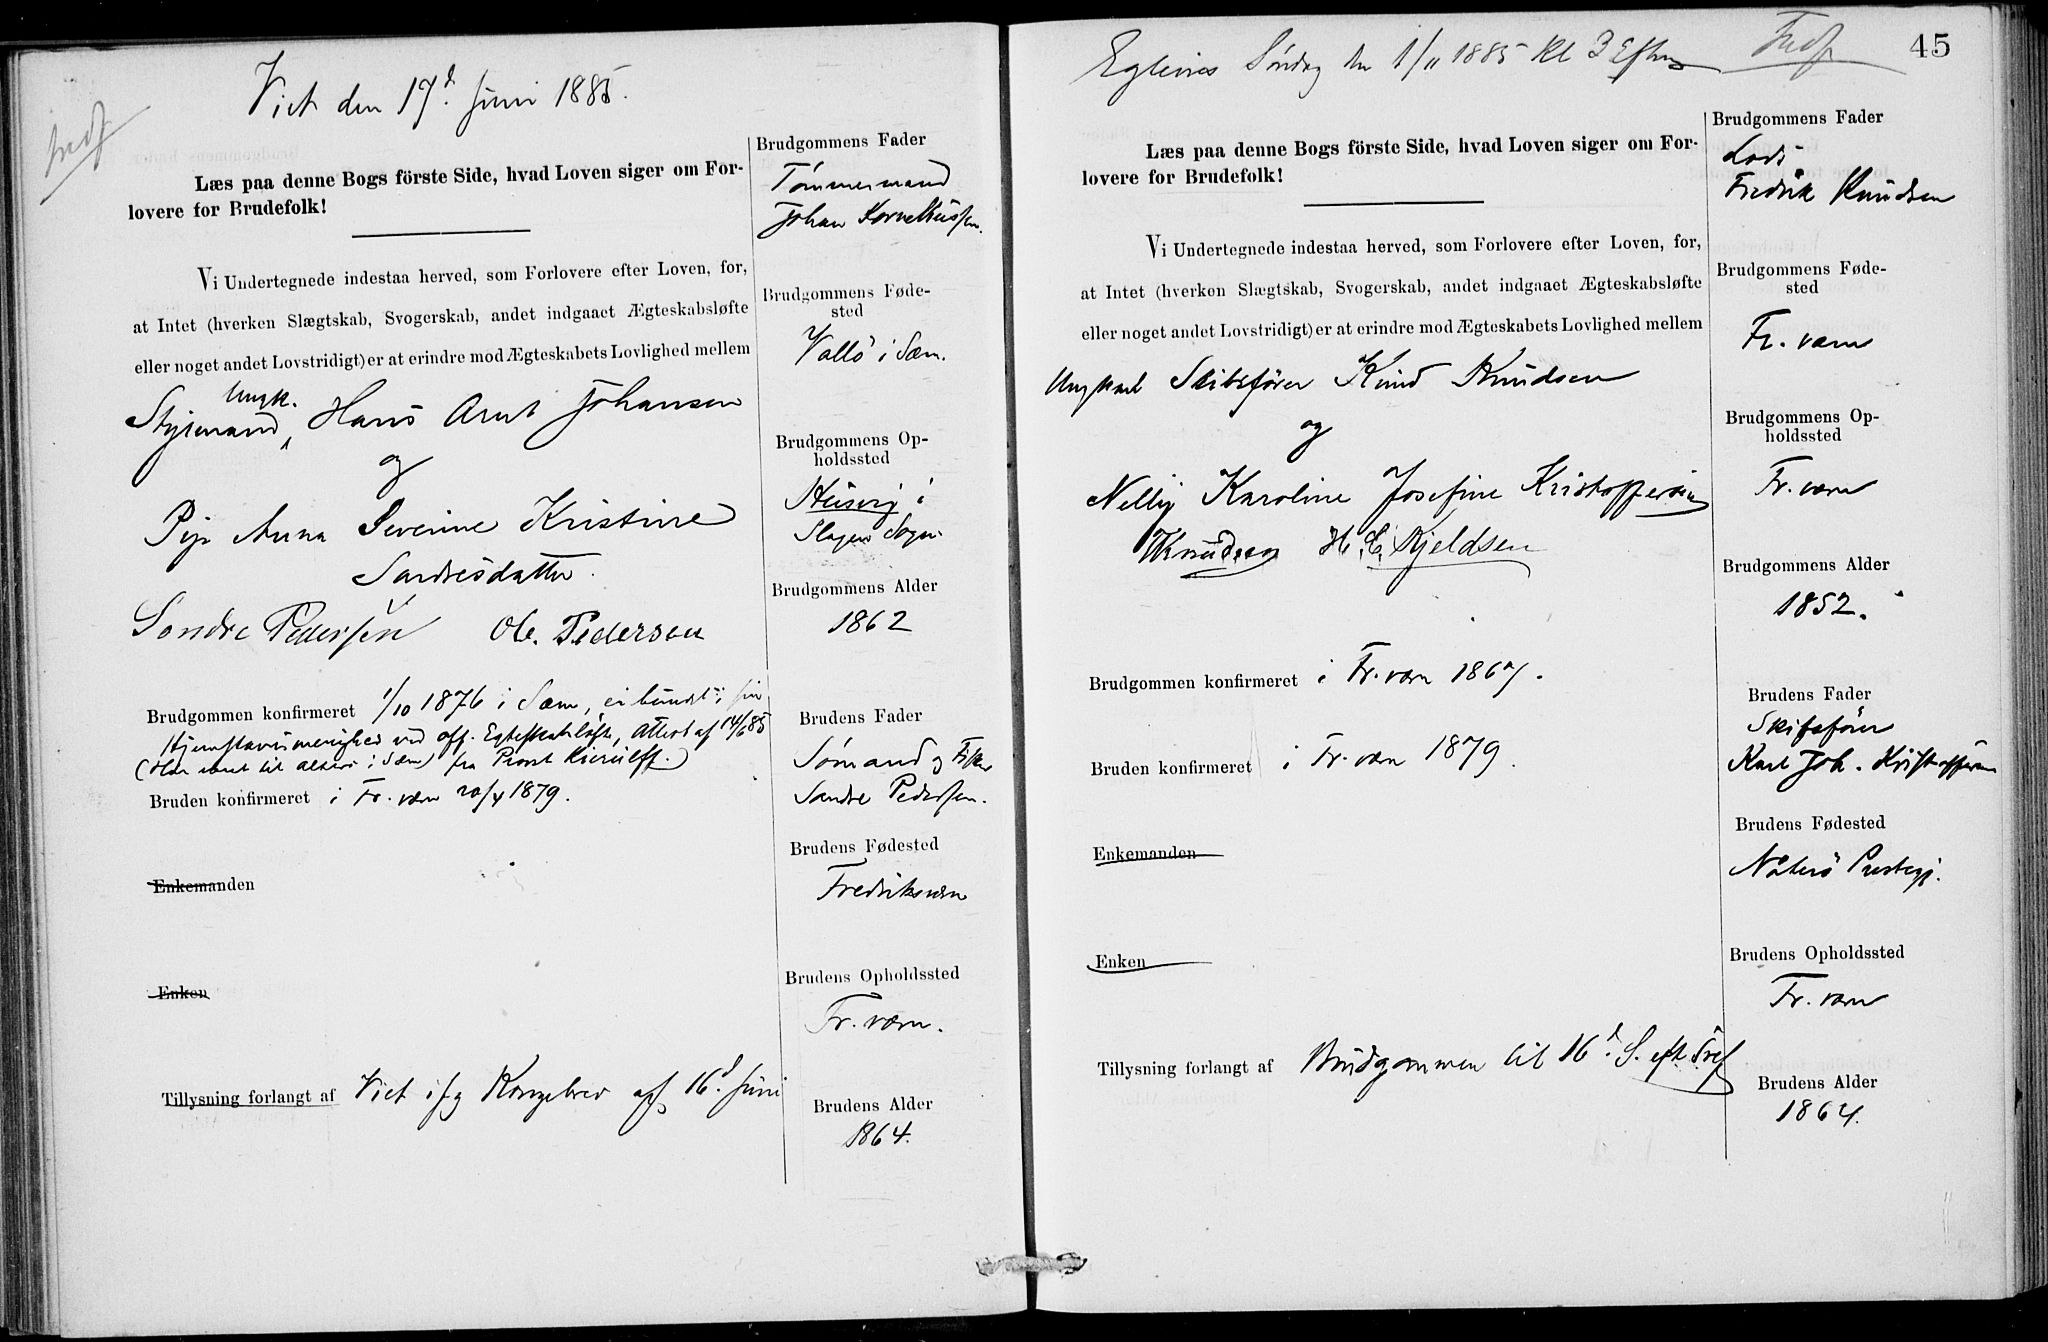 Viet den 17d Juni 1885.
Indf
Læs paa denne Bogs förste Side, hvad Loven siger om For-
lovere for Brudefolk!
Vi Undertegnede indestaa herved, som Forlovere efter Loven, for,
at Intet (hverken Slægtskab, Svogerskab, andet indgaaet Ægteskabsløfte
eller noget andet Lovstridigt) er at erindre mod Ægteskabets Lovlighed mellem
Ungk.
Styrmand, Hans Arnt Johansen
og
Pige Anna Severine Kristine
Sandresdatter.
Sondre Pedersen Ole. Pedersen
Brudgommen konfirmeret 1/10 1876 i Sæm, ei bundet i sin
Hjemstavnsmenighed ved off. Egteskabsløfte, Attest af 14/6 85
(Har været til alters i Sæm) fra Provst Kierulff.
Bruden konfirmeret i Fr. værn 20/4 1879.
Enkemanden
Enken
Tillysning forlangt af Viet ifg Kongebrev af 16d Juni
Brudgommens Fader
Tømmermand
Johan Korneliussen.
Brudgommens Føde-
sted
Vallö i Sæm.
Brudgommens Op-
holdssted
Husvig i
Slagen Sogn.
Brudgommens Alder
1862
Brudens Fader
Sømand og Fisker
Sandre Pedersen.
Brudens Fødested
Fredriksværn
Brudens Opholdssted
Fr. værn.
Brudens Alder
1864.
Egtevies Söndag den 1/11 1885 Kl 3 Efterm
Indf
45
Læs paa denne Bogs förste Side, hvad Loven siger om For-
lovere for Brudefolk!
Vi Undertegnede indestaa herved, som Forlovere efter Loven, for,
at Intet (hverken Slægtskab, Svogerskab, andet indgaaet Ægteskabsløfte
eller noget andet Lovstridigt) er at erindre mod Ægteskabets Lovlighed mellem
Ungkarl Skibsförer Knud Knudsen
og
Nelly Karoline Josefine Kristoffersen
Knudsen H. C. Kjeldsen
Brudgommen konfirmeret i Fr. værn 1867.
Bruden konfirmeret i Fr. værn 1879.
Enkemanden
Enken
Tillysning forlangt af Brudgommen til 16d S. eft. Tref
Brudgommens Fader
Lods
Fredrik Knudsen
Brudgommens Føde-
sted
Fr. værn
Brudgommens Op-
holdssted
Fr. værn
Brudgommens Alder
1852.
Brudens Fader
Skibsförer
Karl Joh. Kristoffersen
Brudens Fødested
Nöterö Prestegj.
Brudens Opholdssted
Fr. værn
Brudens Alder
1864.